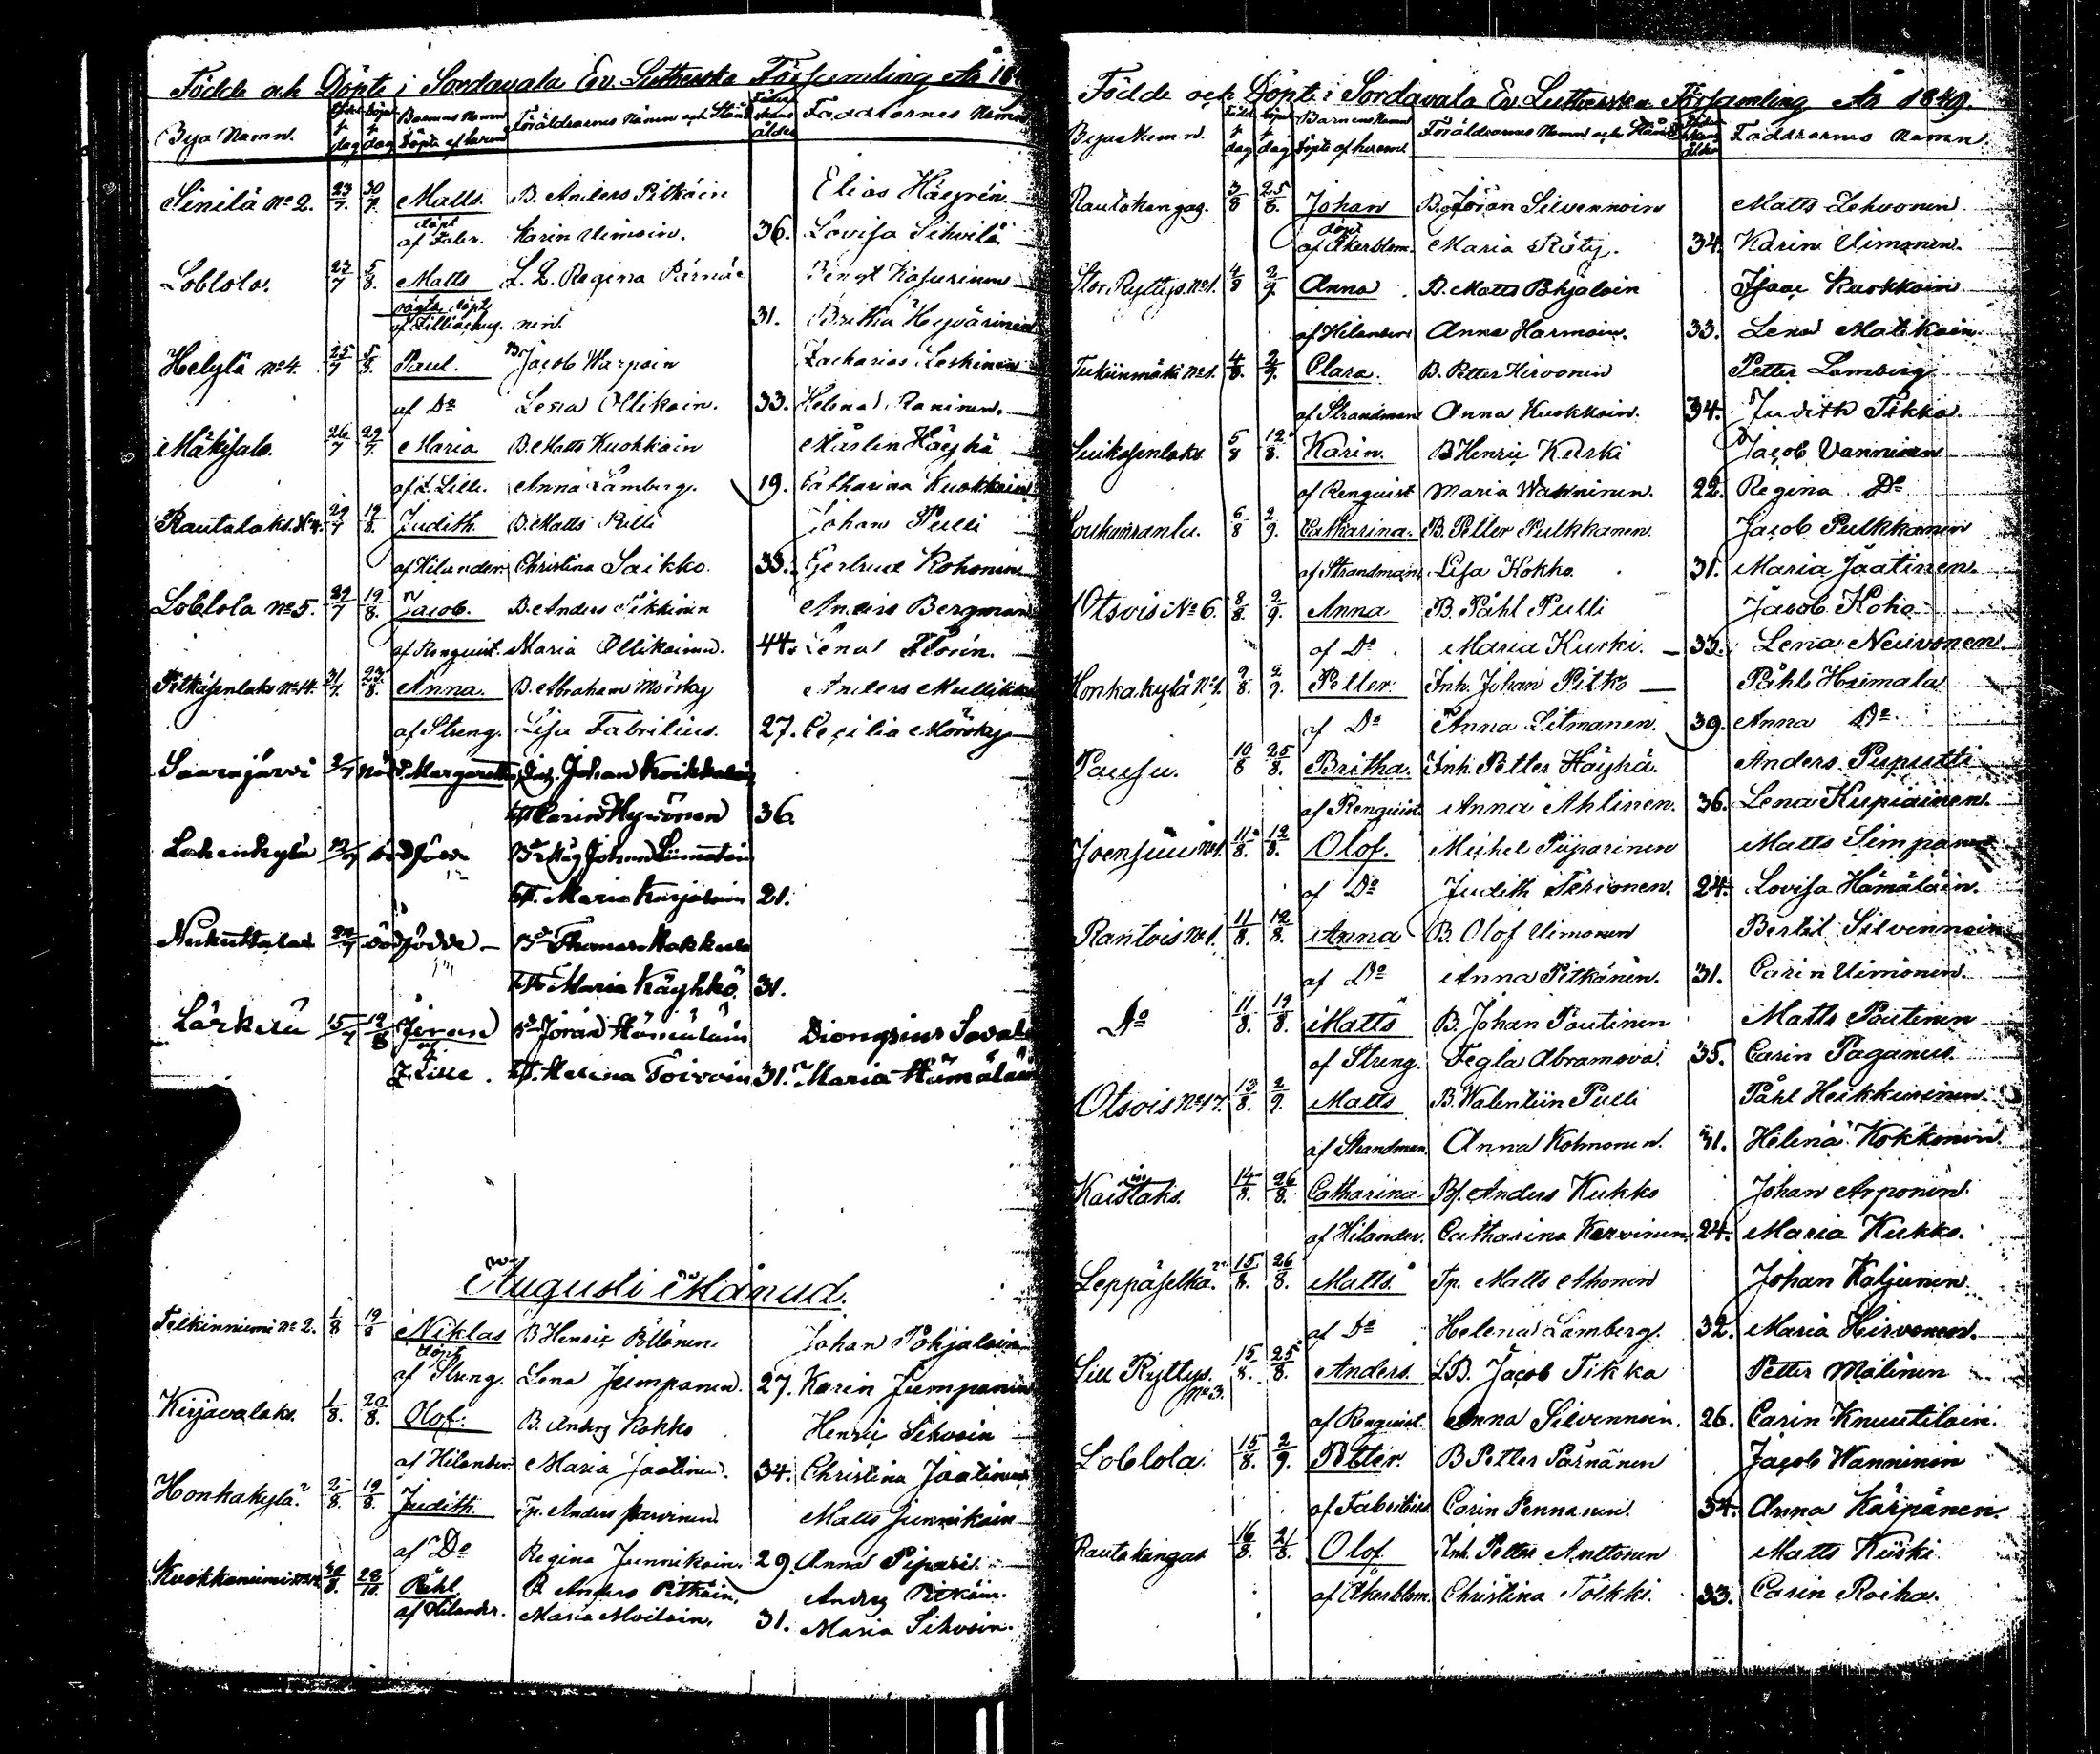 Födde och Döpte i Sordavala Ev. Lutherska Församling År 18
Bya Namn. Född dag Döpt dag Barnens Namn Döpte af hvem Föräldrarnes Namn och Stånd Ålder Faddrarnes Namn
Sinilä No 2. 23/7. 30/7. Matts. B. Anders Pitkäin Elias Häyrén.
döpt af Faler. Karin Uimoin. 36. Lovisa Sihvola
Loblola. 23/7 5/8. Matts L. L. Regina Pärnä= Bengt Kasurinen
oägta döpt af Lilliachug. nen. 31. Britha Hyvärinen
Helylä No 4. 25/7 5/8. Paul. B. Jacob Warpoin Zacharias Leskinen
af Do Lena Ollikain. 33. Helena Raninen.
Mäkisalo. 26/7 29/7. Maria B. Matts Kuokkain Mårten Häyhä
af Z. Lille. Anna Lamberg. 19. Catharina Kuokkain
Rautalaks. No 4. 29/7 19/8. Judith B. Matts Pulli Johan Pulli
af Hilander. Christina Saikko. 33. Gertrud Kohonen
Loblola No 5. 29/7 19/8. Jacob. B. Anders Tikkinen Anders Bergman
af Renquist. Maria Ollikainen. 44. Lena Florin.
Pitkäsenlaks No 14. 31/7. 23/8. Anna. B. Abraham Mörsky Anders Mullikka
af Streng. Lisa Fabritius. 27. Cecilia Mörsky
Saarajärvi 2/7 Margaretha Inh. Johan Koikkalain
H. Carin Hyvönen 36.
Lahenkylä 12/7 dödfödd Johan Liimatain
H. Maria Karjalain 21.
Nukuttalax 22/7 dödfödde Bd Thomas Hakkula
H. Maria Käyhkö. 31.
Lärkelä 15/7 19/8 Jöran Bd Jöran Hämäläin Dionysius Saval
af Z. Lille. H. Helena Toivoin 31. Maria Hämäläin
Augusti Månad.
Telkinniemi No 2. 1/8 19/8 Niklas B Henric Pöllänen Johan Pohjalain
döpt af Streng. Lena Jumpanen. 27. Karin Jumpanen
Kirjavalaks. 1/8. 20/8. Olof. B. Anders Kokko Henric Sihvoin
af Hilander. Maria Jaatinen. 34. Christina Jäätinen
Honkakylä 2/8. 19/8. Judith Tp. Anders Parvinen Matts Junnikain
af Do Regina Junnikain. 29. Anna Pipari.
Kuokkaniemi 28/10. Påhl B Anders Pitkäin. Anders Pitkäin.
af Hilander. Maria Moilain. 31. Maria Sihvoin.
Födde och Döpte i Sordavala Ev Lutherska Församling År 1849.
Byarnas Namn. Född dag Döpt dag Barnens Namn Döpte af hvem Föräldrarnes Namn och Stånd Ålder Faddrarnes Namn.
Rautakangas. 3/8 25/8. Johan B. Jöran Silvennoin Matts Lehvonen
döpt af Åkerblom. Maria Räty. 34. Karin Uimonen.
Stor Ryttys. No 1. 4/8 2/9. Anna B. Matts Pohjalain Isaac Kuokkain
af Hilander Anna Harmoin. 33. Lena Matikain
Tukiinmäki No 1. 4/8. 2/9. Clara. B. Petter Hirvonen Petter Lamberg
af Strandman Anna Kuokkain. 34. Judith Tikka.
Suikasenlaks 5/8 12/8. Karin. B Henric Kurki Jacob Vanninen
af Renquist Maria Wanninen. 22. Regina Do
Louhunranta. 6/8 2/9. Catharina. B. Petter Pulkkanen Jacob Pulkkanen
af Strandman. Lisa Kokko. 31. Maria Jäätinen.
Otsois No 6. 8/8. 2/9. Anna B. Påhl Pulli Jacob Koho
af Do Maria Kurki. 33. Lena Neuvonen
Honkakylä No 1. 9/8. 2/9. Petter. Inh. Johan Pitko Påhl Hiimala
af Do Anna Litmanen. 39. Anna Do
Pausu. 10/8 25/8. Britha. Inh. Petter Häyhä. Anders Puputti
af Renquist Anna Ahlinen. 36. Lena Kupiainen.
Joensuu No 1. 11/8. 12/8. Olof. Michel Piiparinen Matts Simpanen
af Do Judith Terionen. 24. Lovisa Hämäläin.
Rantois No 1. 11/8. 12/8. Anna B. Olof Uimonen Bertil Silvennoin
af Do Anna Pitkänen. 31. Carin Uimonen.
Do 11/8. 19/8. Matts B. Johan Poutinen Matts Poutinen
af Streng. Fegla Abramova. 35. Carin Paganus.
Otsois No 17. 13/8. 2/9. Matts B. Walentiin Pulli Påhl Heikkurinen
af Strandman. Anna Kohmonen. 41. Helena Kokkonen
Kaistaks. 14/8. 26/8. Catharina Bf. Anders Kukko Johan Arponen
af Hilander. Catharina Karvinen 24. Maria Kukko.
Leppäselkä. 15/8. 26/8. Matts. Tp. Matts Ahonen Johan Kaljunen
af Do Helena Lamberg. 32. Maria Hirvonen.
Lill Ryttys. No 3. 15/8. 25/8. Anders. LB. Jacob Tikka Petter Malinen
af Renquist. Anna Silvennoin. 26. Carin Knuutilain.
Loblola. 15/8. 2/9. Petter. B Petter Pärnänen Jacob Wanninen
af Fabritius. Carin Pennanen. 34. Anna Kärpänen.
Rautakangas 16/8. 21/8. Olof Inh. Petter Anttonen Matts Kiiski
af Åkerblom. Christina Tölkki. 33. Carin Roiha.